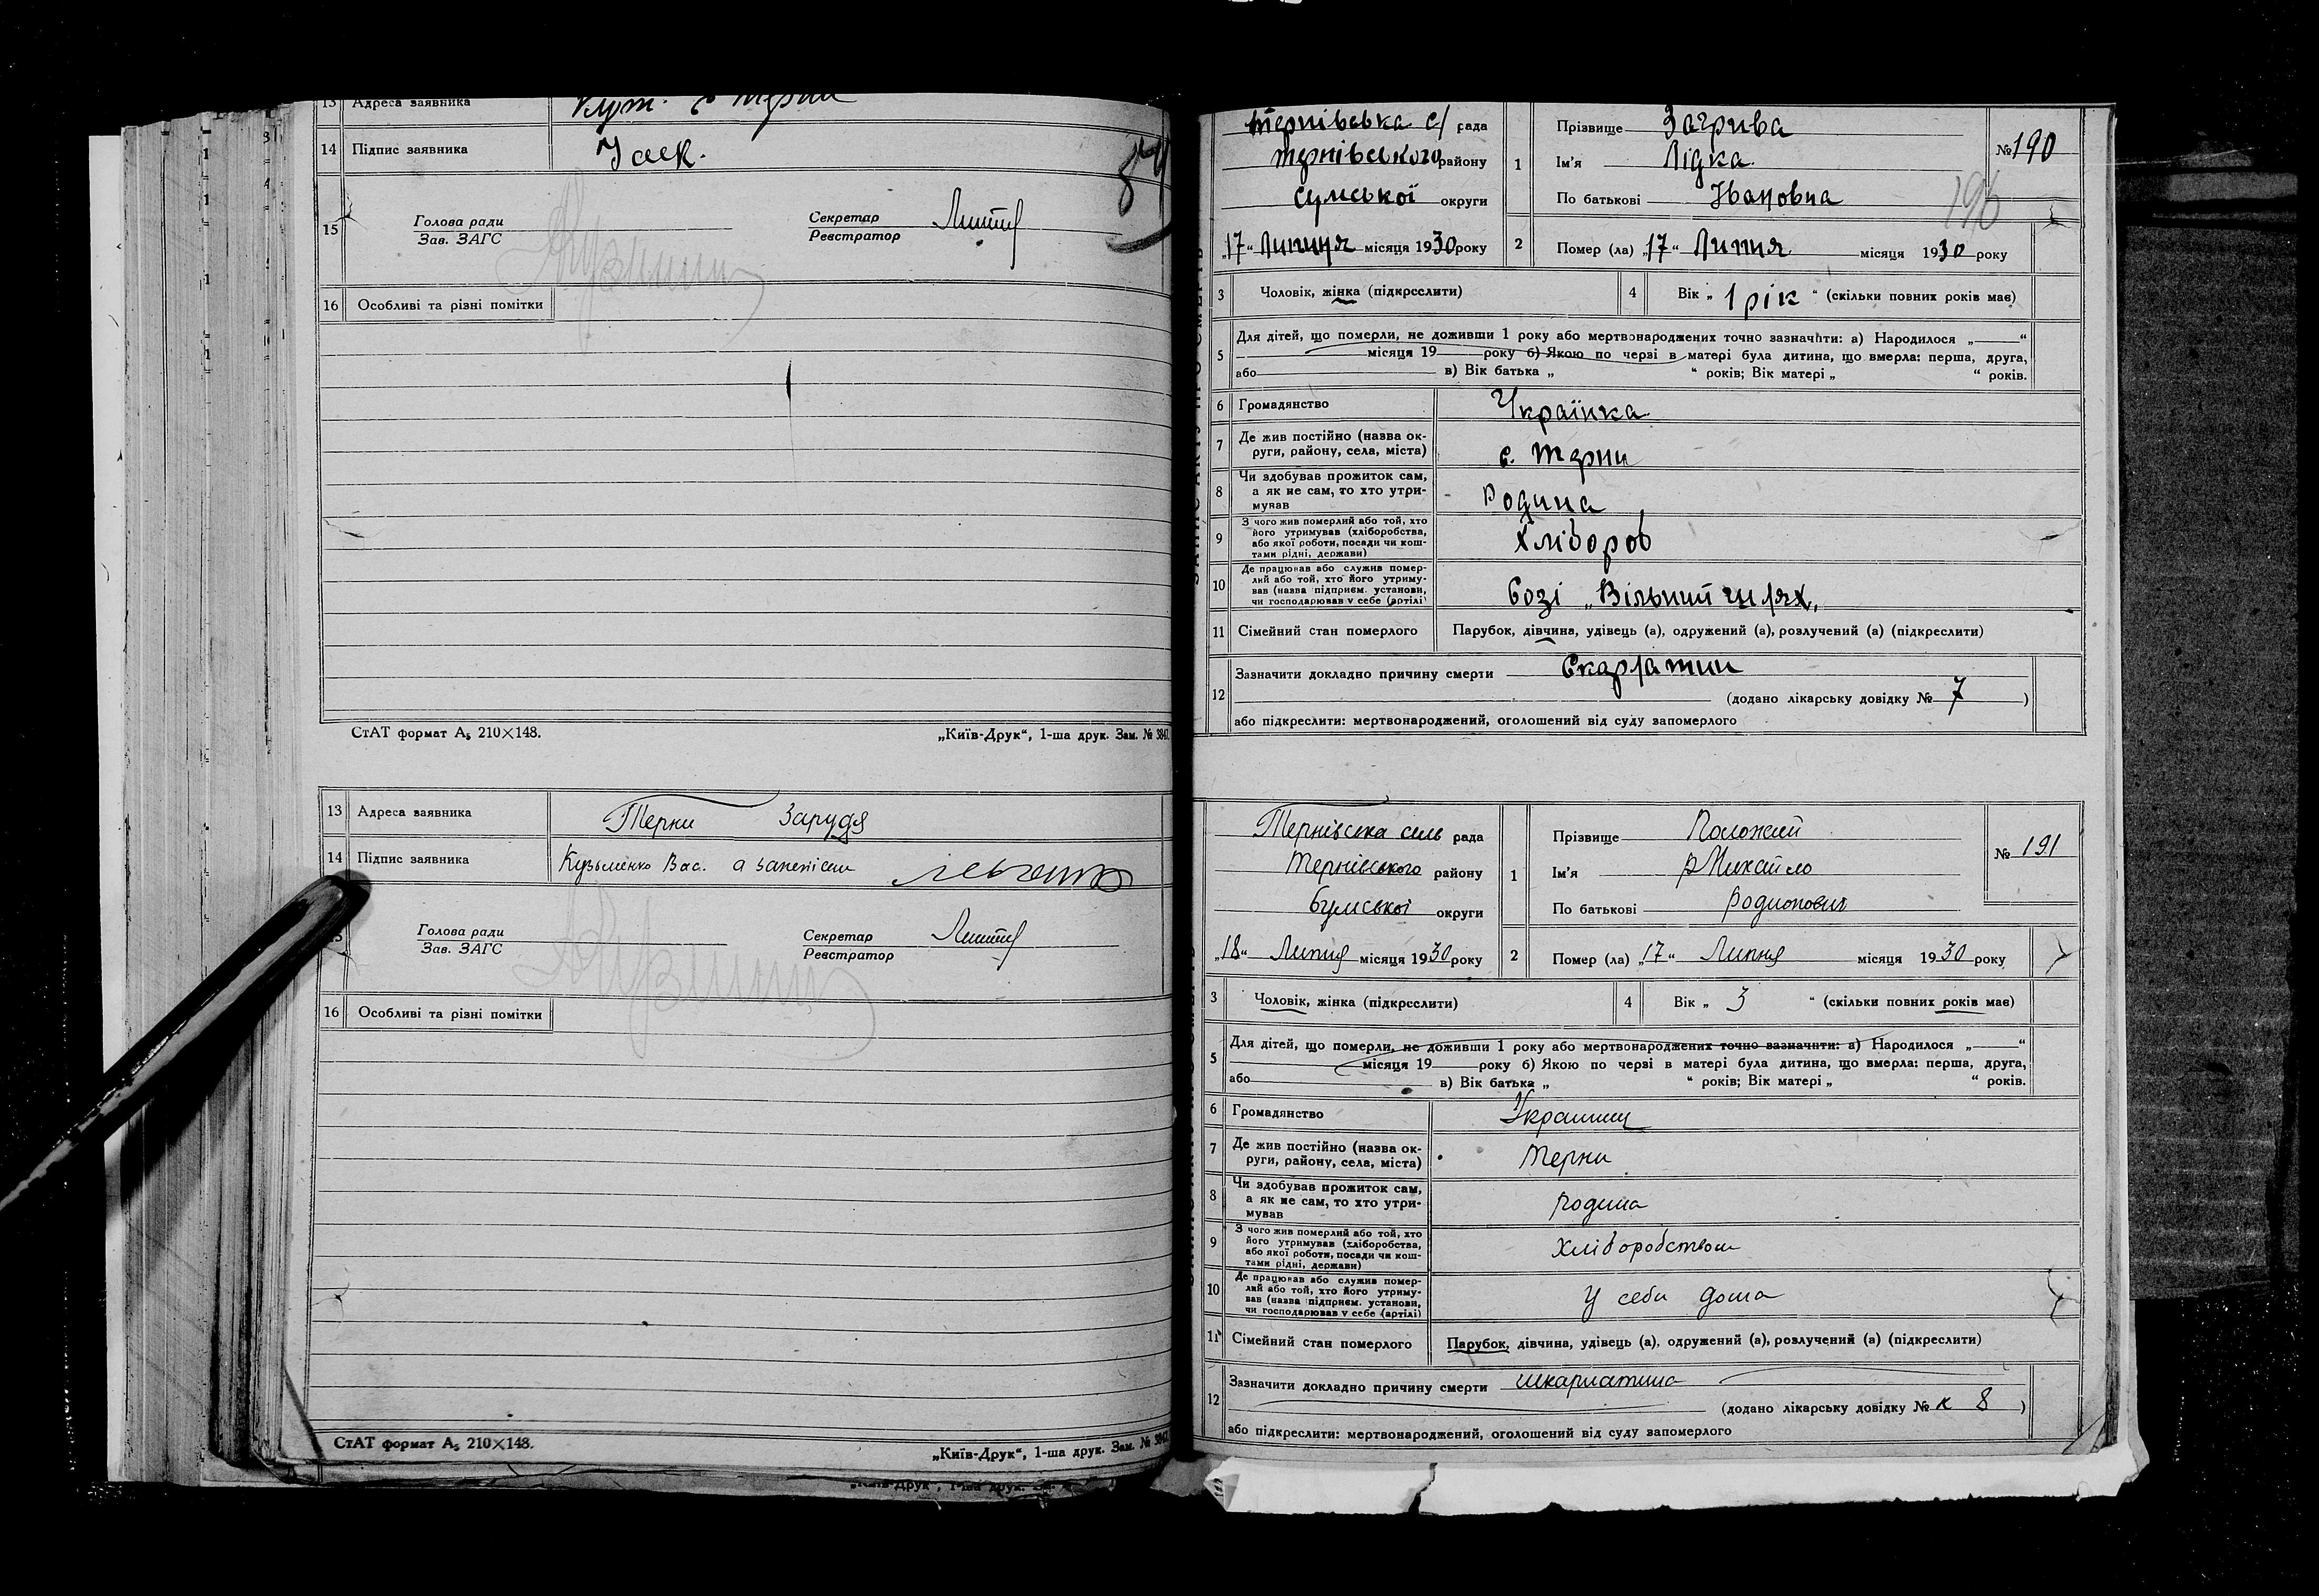 13 Адреса заявника
14 Підпис заявника
15 Голова ради
Зав. ЗАГС
Секретар
Реєстратор
16 Особливі та різні помітки
СтАТ формат А5 210×148.
„Київ-Друк“, 1-ша друк. Зам. № 3847.
13 Адреса заявника Терни Зарудя
14 Підпис заявника Кузьменко Вас.
Голова ради
Зав. ЗАГС
Секретар
Реєстратор
16 Особливі та різні помітки
СтАТ формат А5 210×148.
„Київ-Друк“, 1-ша друк. Зам. №
Тернівська с/ рада
Тернівського району
Сумської округи
„17“ Липня місяця 1930 року
1 Прізвище Загрива
Ім'я Лідка
По батькові Івановна
№ 190
196
2 Помер (ла) „17“ Липня місяця 1930 року
3 Чоловік, жінка (підкреслити)
4 Вік „1 рік“ (скільки повних років має)
5 Для дітей, що померли, не доживши 1 року або мертвонароджених точно зазначити: а) Народилося „ “
місяця 19 року б) Якою по черзі в матері була дитина, що вмерла: перша, друга,
або в) Вік батька „ “ років; Вік матері „ “ років.
6 Громадянство Українка
7 Де жив постійно (назва ок-
руги, району, села, міста) с. Терни
8 Чи здобував прожиток сам,
а як не сам, то хто утри-
мував Родина
9 З чого жив померлий або той, хто
його утримував (хліборобства,
або якої роботи, посади чи кош-
тами рідні, держави) Хлібороб
10 Де працював або служив помер-
лий або той, хто його утриму-
вав (назва підприєм. установи,
чи господарював у себе (артілі) Созі „Вільний шлях„
11 Сімейний стан померлого Парубок, дівчина, удівець (а), одружений (а), розлучений (а) (підкреслити)
12 Зазначити докладно причину смерти Скарлатин
(додано лікарську довідку № 7 )
або підкреслити: мертвонароджений, оголошений від суду запомерлого
Тернівська сель рада
Тернівського району
Сумської округи
„18“ Липня місяця 1930 року
1 Прізвище Положий
Ім'я Михайло
По батькові Родионович
№ 191
2 Помер (ла) „17“ Липня місяця 1930 року
3 Чоловік, жінка (підкреслити)
4 Вік „ 3 “ (скільки повних років має)
5 Для дітей, що померли, не доживши 1 року або мертвонароджених точно зазначити: а) Народилося „ “
місяця 19 року б) Якою по черзі в матері була дитина, що вмерла: перша, друга,
або в) Вік батька „ “ років; Вік матері „ “ років.
6 Громадянство Украинец
7 Де жив постійно (назва ок-
руги, району, села, міста) Терни
8 Чи здобував прожиток сам,
а як не сам, то хто утри-
мував родина
9 З чого жив померлий або той, хто
його утримував (хліборобства,
або якої роботи, посади чи кош-
тами рідні, держави) Хліборобством
10 Де працював або служив помер-
лий або той, хто його утриму-
вав (назва підприєм. установи,
чи господарював у себе (артілі) У себи дома
11 Сімейний стан померлого Парубок, дівчина, удівець (а), одружений (а), розлучений (а) (підкреслити)
12 Зазначити докладно причину смерти шкарлатина
(додано лікарську довідку № к 8 )
або підкреслити: мертвонароджений, оголошений від суду запомерлого